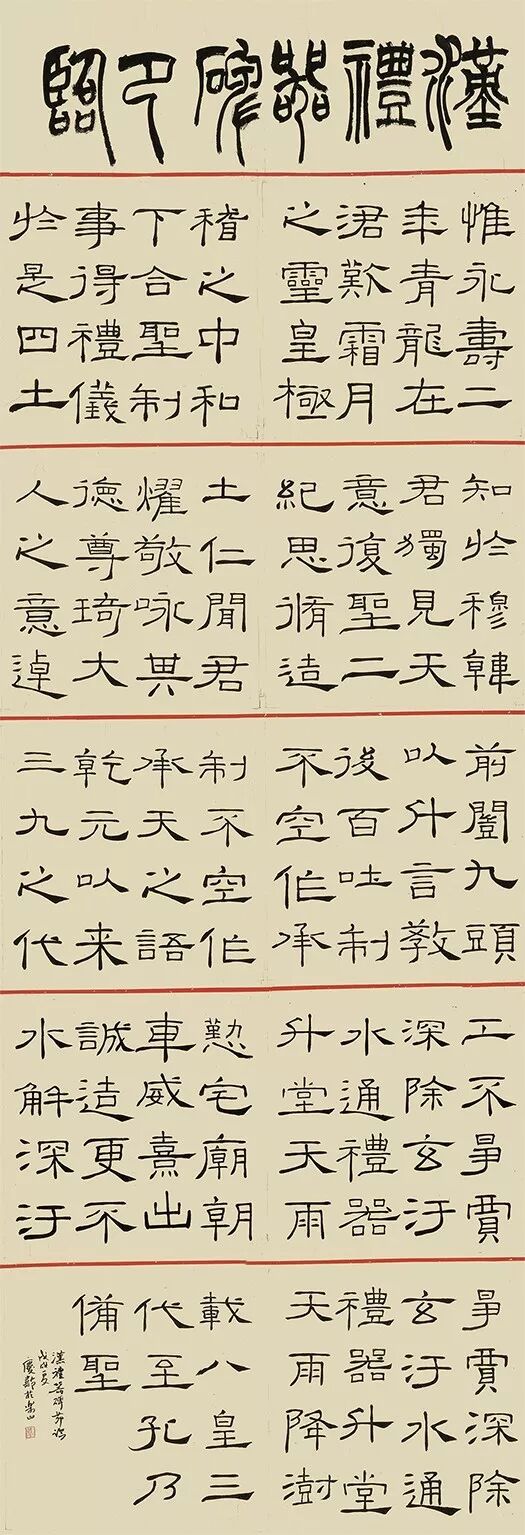 漢禮器碑卩臨
惟永壽二
年青龍在
涒歎霜月
之靈皇極
稽之中和
下合聖制
事得禮儀
於是四土
知於穆韓
君獨見天
意復聖二
紀思脩造
土仁聞君
燿敬咏其
德尊琦大
人之意逴
前闓九頭
以升言教
後百吐制
不空作承
制不空作
承天之語
乾元以来
三九之代
工不爭賈
深除玄汙
水通禮器
升堂天雨
懃宅廟朝
車威熹出
誠造更不
水解深汙
爭賈深除
玄汙水通
禮器升堂
天雨降澍
載八皇三
代至孔乃
備聖
漢禮器碑節臨
戊戌夏